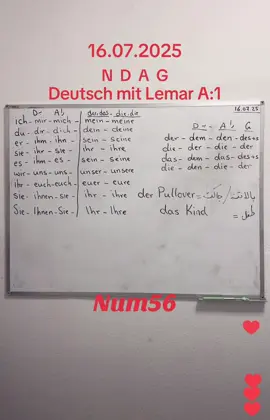 16.07.2025
N D A G
Deutsch mit Lemar A:1
16.07.25
D- A', der.das- die.die
ich-mir-mich- mein-meine
du-dir-dich- dein-deine
er-ihm-ihn- sein-seine
sie-ihr-sie- ihr-ihre
es-ihm-es- sein-seine
wir-uns-uns- unser-unsere
ihr-euch-euch- euer-eure
Sie-ihnen-sie- ihr-ihre
Sie-Ihnen-Sie- Ihr-Ihre
D-- A', G
der-dem-den-des+s
die-der-die-der
das-dem-das-des+s
die-den-die-der
der Pullover=
das Kind = طفل
Num56